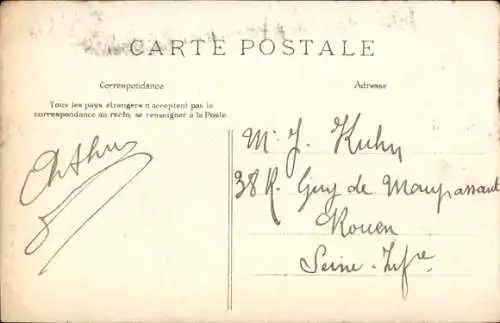 CARTE POSTALE
Correspondance
Adresse
Tous les pays étrangers n'acceptent pas la
correspondance au recto, se renseigner à la Poste
Arthur
Mr J. Kuhn
38 R. Guy de Maupassant
Rouen
Seine-Infre